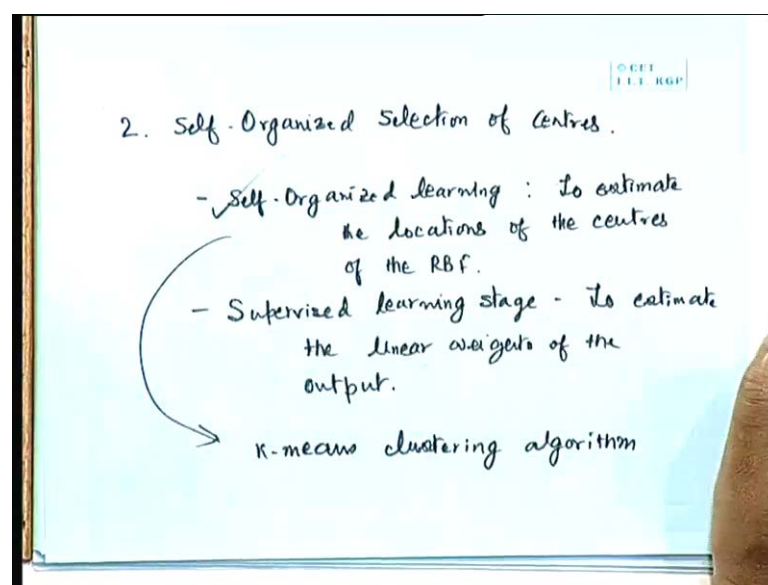 © CET
I.I.T. KGP
2. Self-Organized Selection of Centres.
- Self-Organized learning : To estimate
the locations of the centres
of the RBF.
- Supervized learning stage - To estimate
the linear weights of the
output.
K-means clustering algorithm